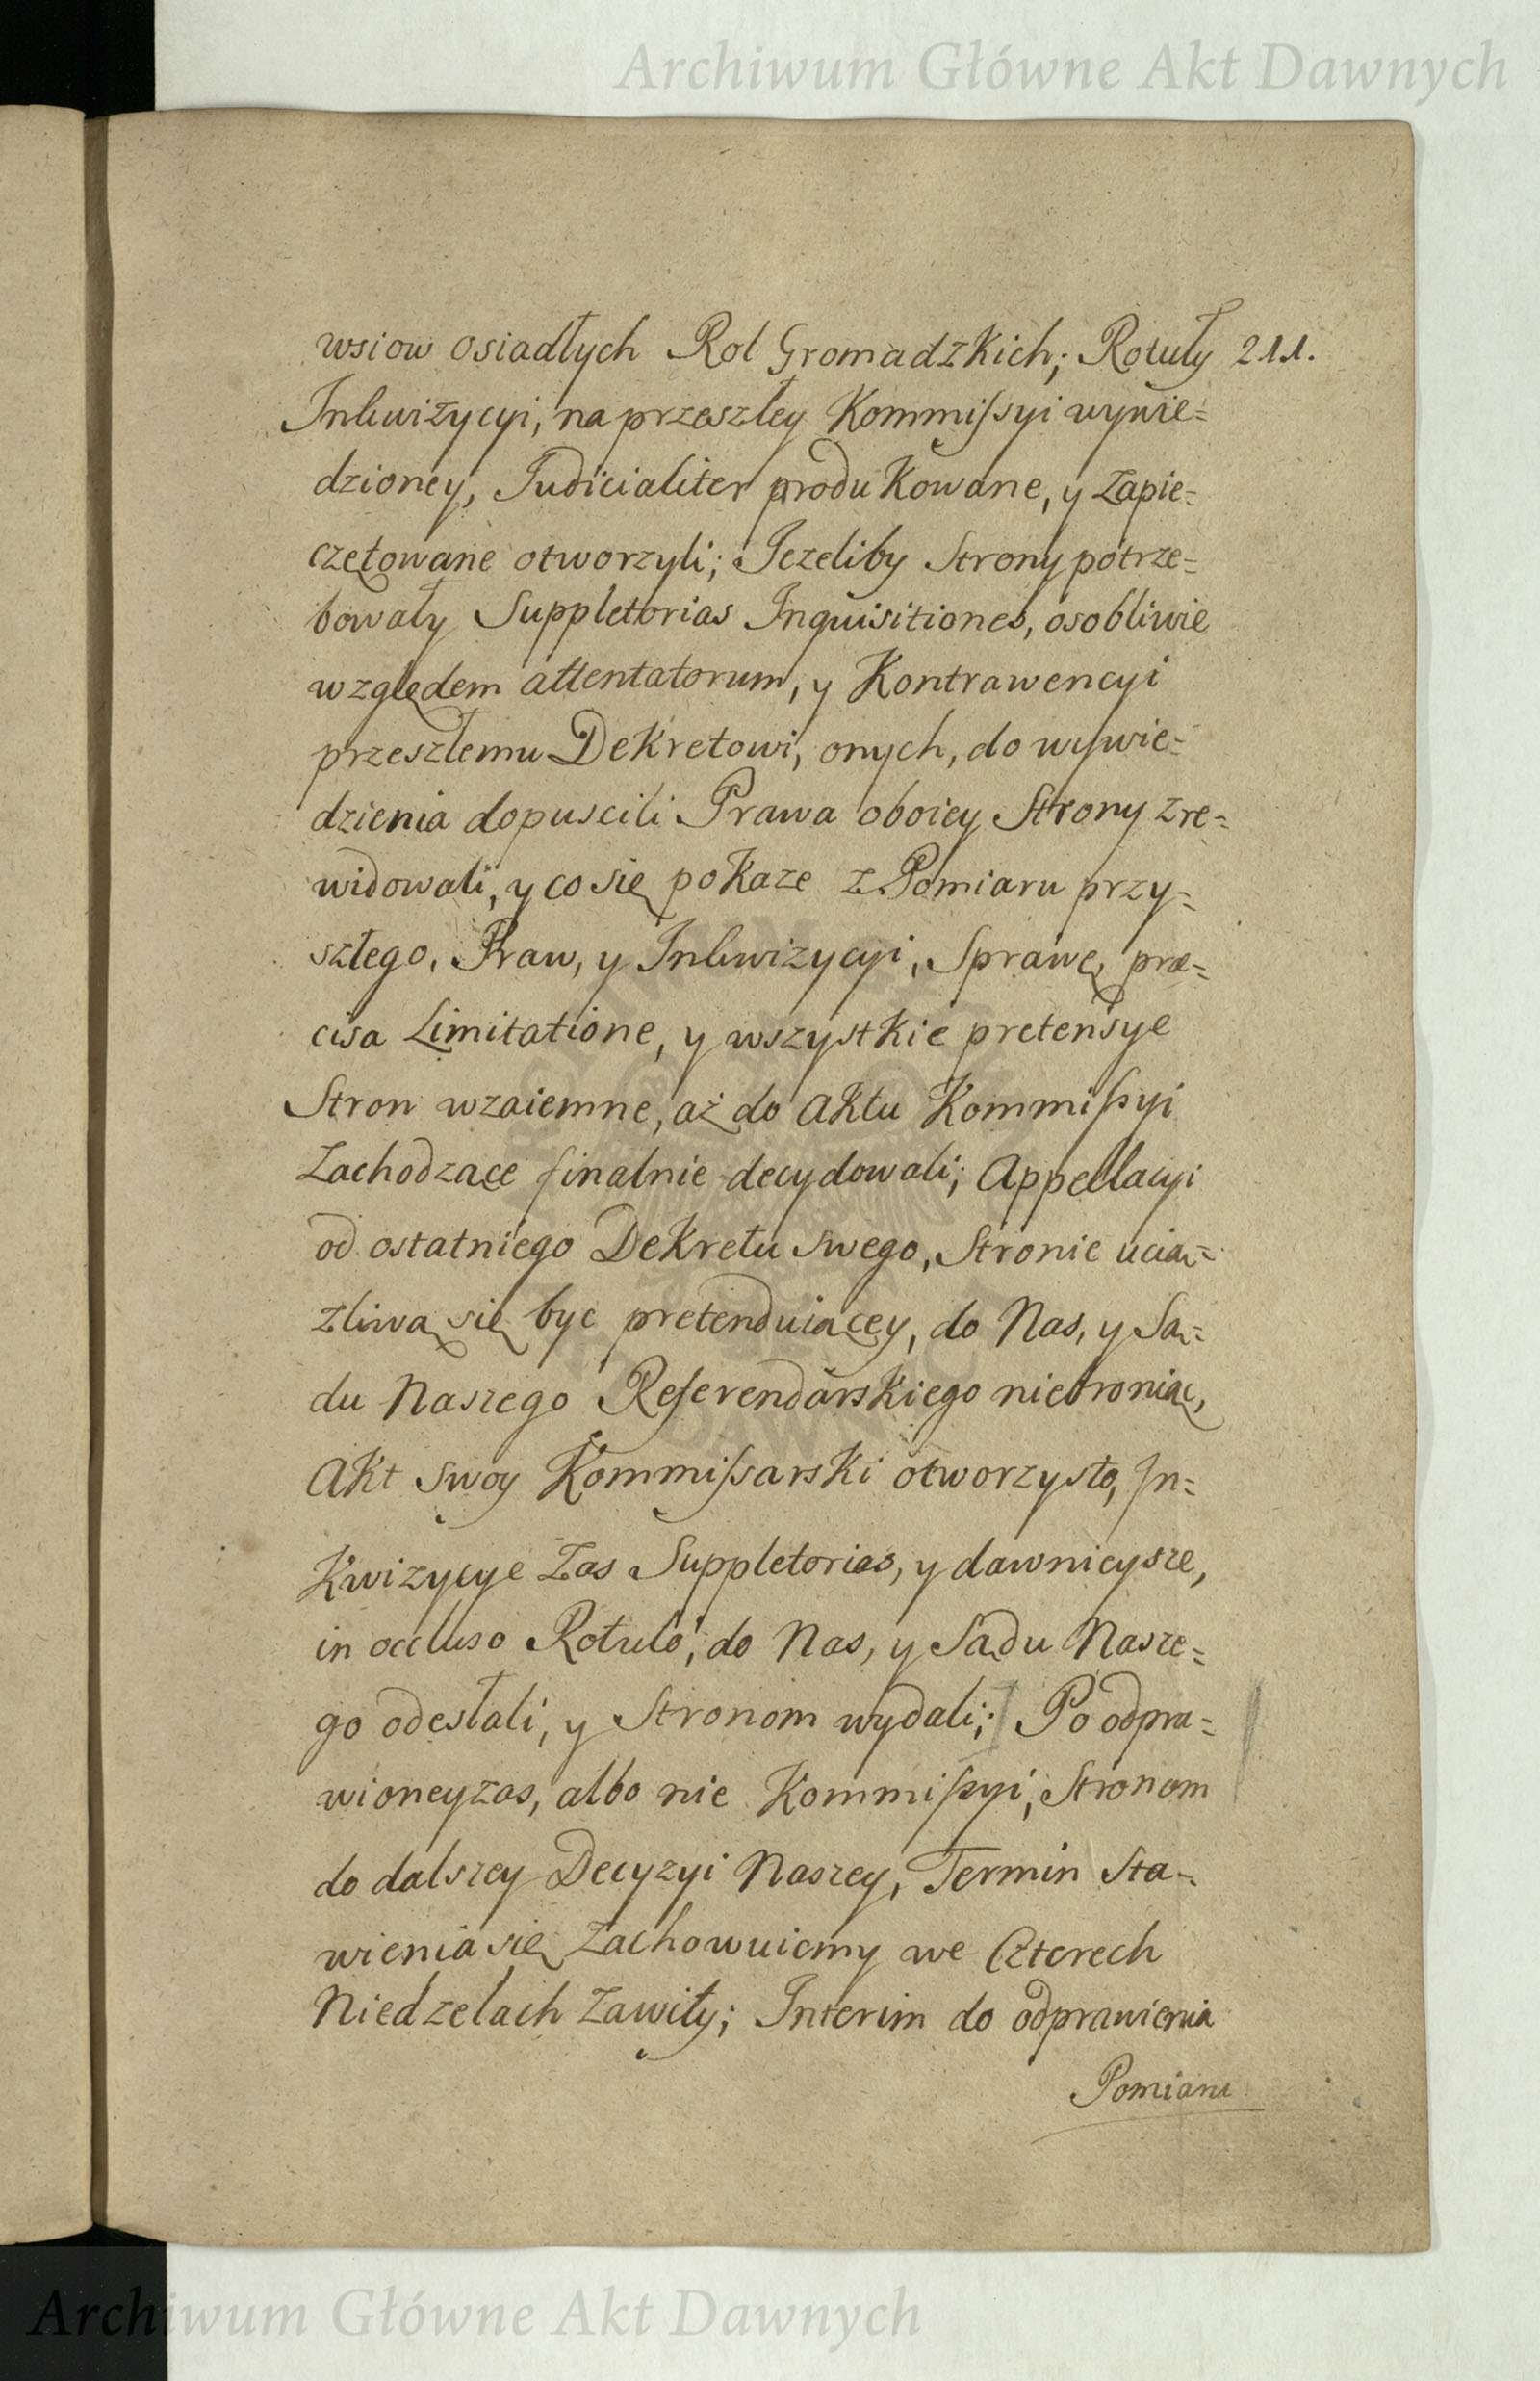 Archiwum Główne Akt Dawnych
wsiow osiadłych Rol Gromadzkich; Rotuły 211.
Inkwizycyi, na przeszłey Kommiſsyi wywie=
dzioney, Judicialiter produkowane, y zapie=
czętowane otworzyli; Jezeliby Strony potrze=
bowały Suppletorias Inquisitiones, osobliwie
względem attentatorum, y Kontrawencyi
przeszłemu Dekretowi, onych, do wywie=
dzienia dopuscili Prawa oboiey Strony zre=
widowali, y co się pokaze z Pomiaru przy=
szłego, Praw, y Inkwizycyi, Sprawę, præ=
cisa Limitatione, y wszystkie pretensye
Stron wzaiemne, aż do aktu Kommiſsyi
Zachodzące finalnie decydowali; Appellacyi
od ostatniego Dekretu swego, Stronie ucią=
zliwą się byc pretenduiącey, do Nas, y Są=
du Naszego Referendarskiego niebroniąc,
Akt swoy Kommiſsarski otworzysto, In=
kwizycye Zas Suppletorias, y dawnieysze,
in occluso Rotulo, do Nas, y Sądu Nasze=
go odesłali, y Stronom wydali; Po odpra=
wioney zas, albo nie Kommiſsyi, Stronom
do dalszey Decyzyi Naszey, Termin Sta=
wienia się Zachowuiemy we Czterech
Niedzelach Zawity; Interim do odprawienia
Pomiaru
Archiwum Główne Akt Dawnych